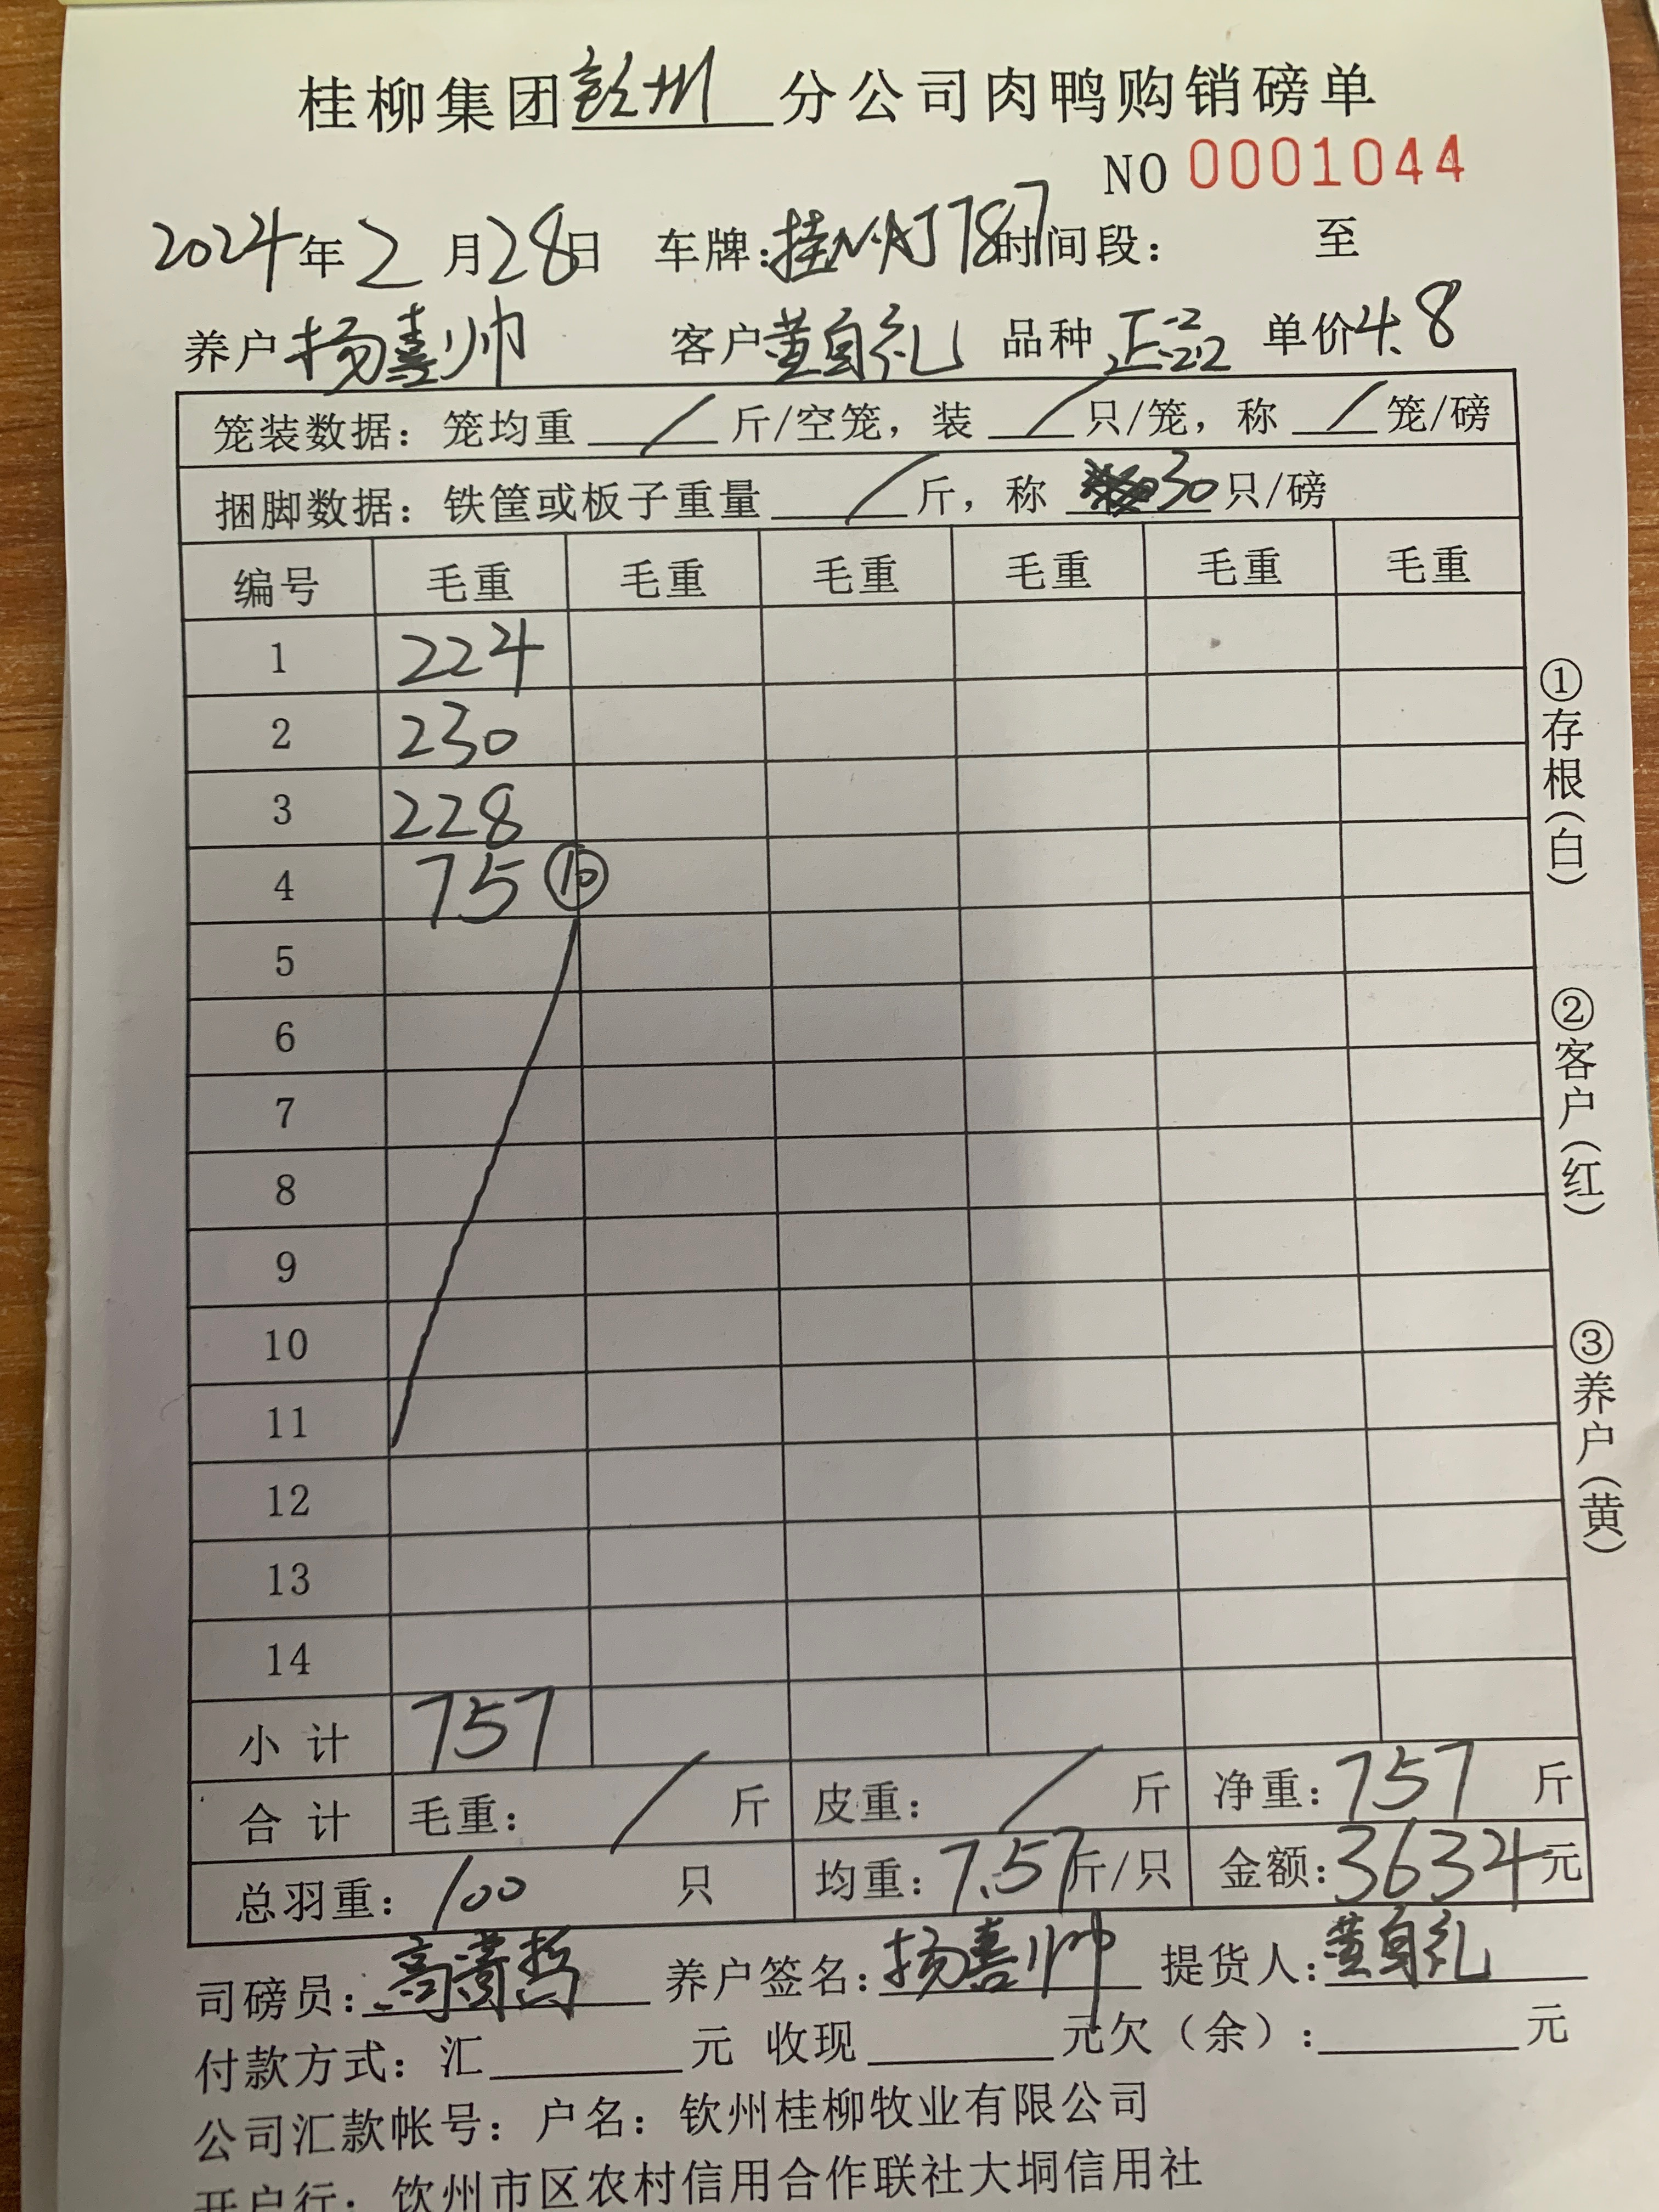 桂柳集团钦州分公司肉鸭购销磅单
NO 0001044
2024年2月28日 车牌:桂N·AJ787 时间段: 至
养户 杨喜帅 客户 黄自礼 品种 正品 单价 4.8
笼装数据: 笼均重 / 斤/空笼, 装 / 只/笼, 称 / 笼/磅
捆脚数据: 铁筐或板子重量 / 斤, 称 30 只/磅
编号 毛重 毛重 毛重 毛重 毛重 毛重
1 224
2 230
3 228
4 75 ⑩
5
6
7
8
9
10
11
12
13
14
小计 757
合计 毛重: / 斤 皮重: / 斤 净重: 757 斤
总羽重: 100 只 均重: 7.57 斤/只 金额: 3634 元
司磅员: 高 养户签名: 杨喜帅 提货人: 黄自礼
付款方式: 汇 元 收现 元欠(余): 元
公司汇款帐号: 户名: 钦州桂柳牧业有限公司
开户行: 钦州市区农村信用合作联社大垌信用社
①存根(白)
②客户(红)
③养户(黄)